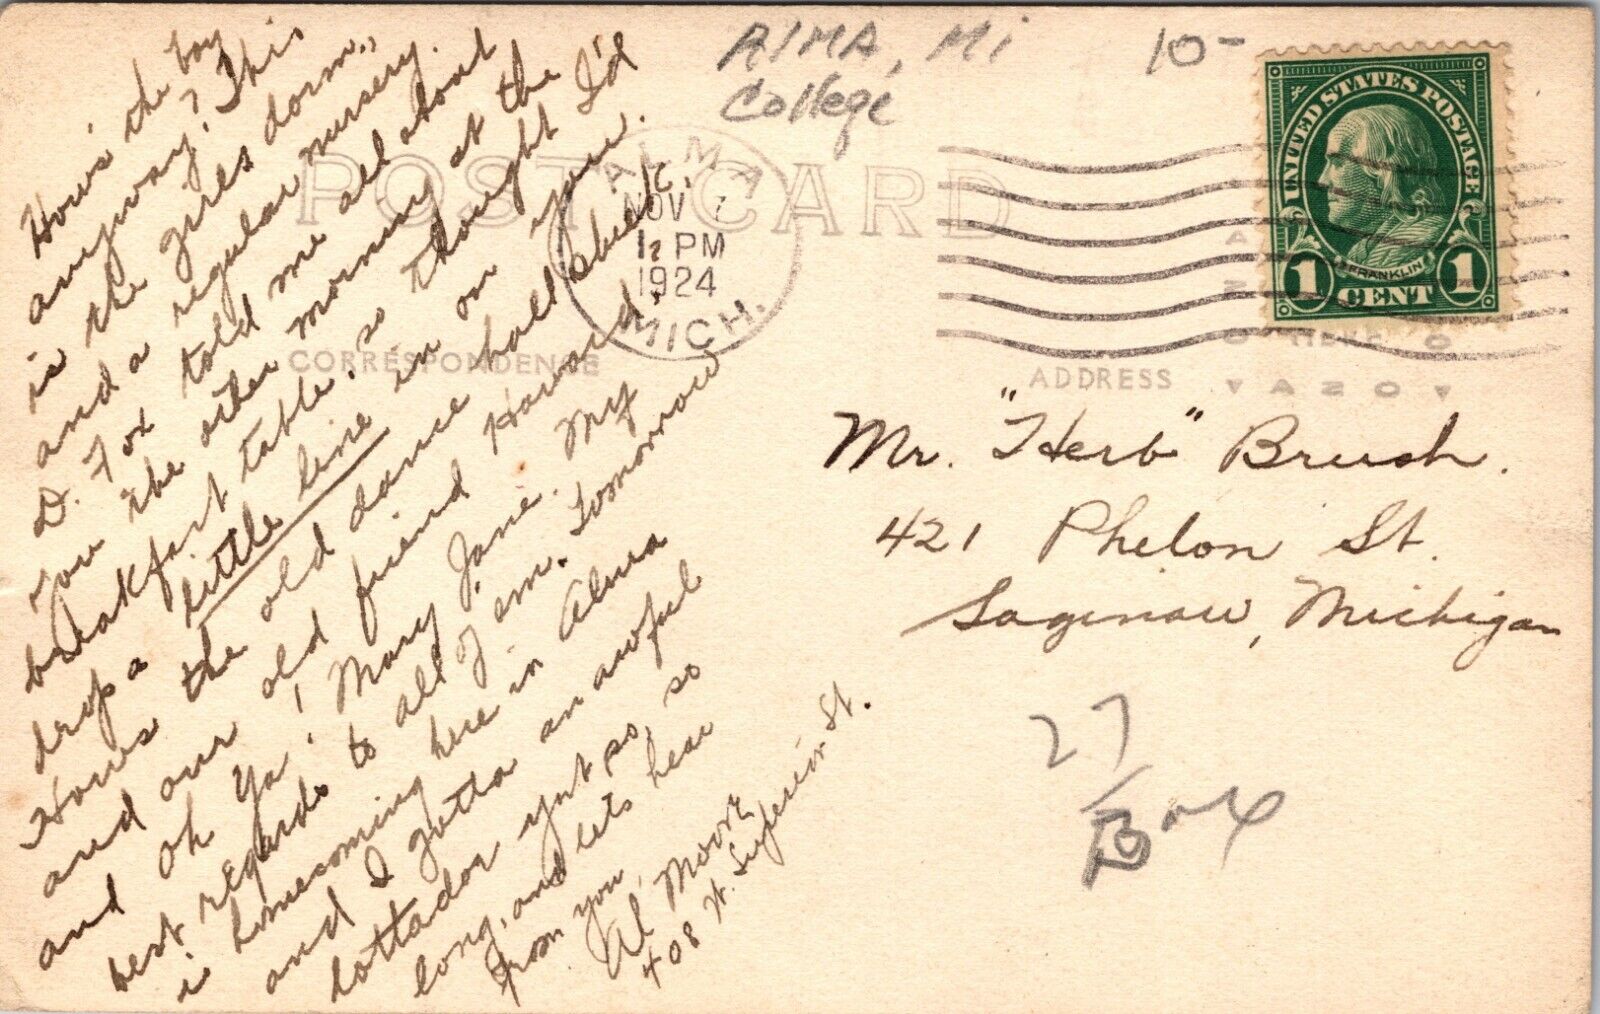 Alma, Mi
College
10-
POST CARD
CORRESPONDENCE
ADDRESS
ALMA
NOV 7
12 PM
1924
MICH.
UNITED STATES POSTAGE
FRANKLIN
1 CENT 1
How's the boy
anyway? This
is the girls dorm.,
and a regular nursery.
D. Fox told me all about
you the other morning at the
breakfast table. so thought I'd
drop a little line in on you.
Hows the old dance hall sheik,
and our old friend Howard,
and oh Ya! Mary Jane. My
best regards to all of em. Tomorrow
is homecoming here in Alma
and I gotta an awful
lottador yut so, so
long, and lets hear
from you,
Al Moore
408 W. Superior St.
Mr. "Herb" Brush.
421 Phelon St.
Saginaw, Michigan
27
Box